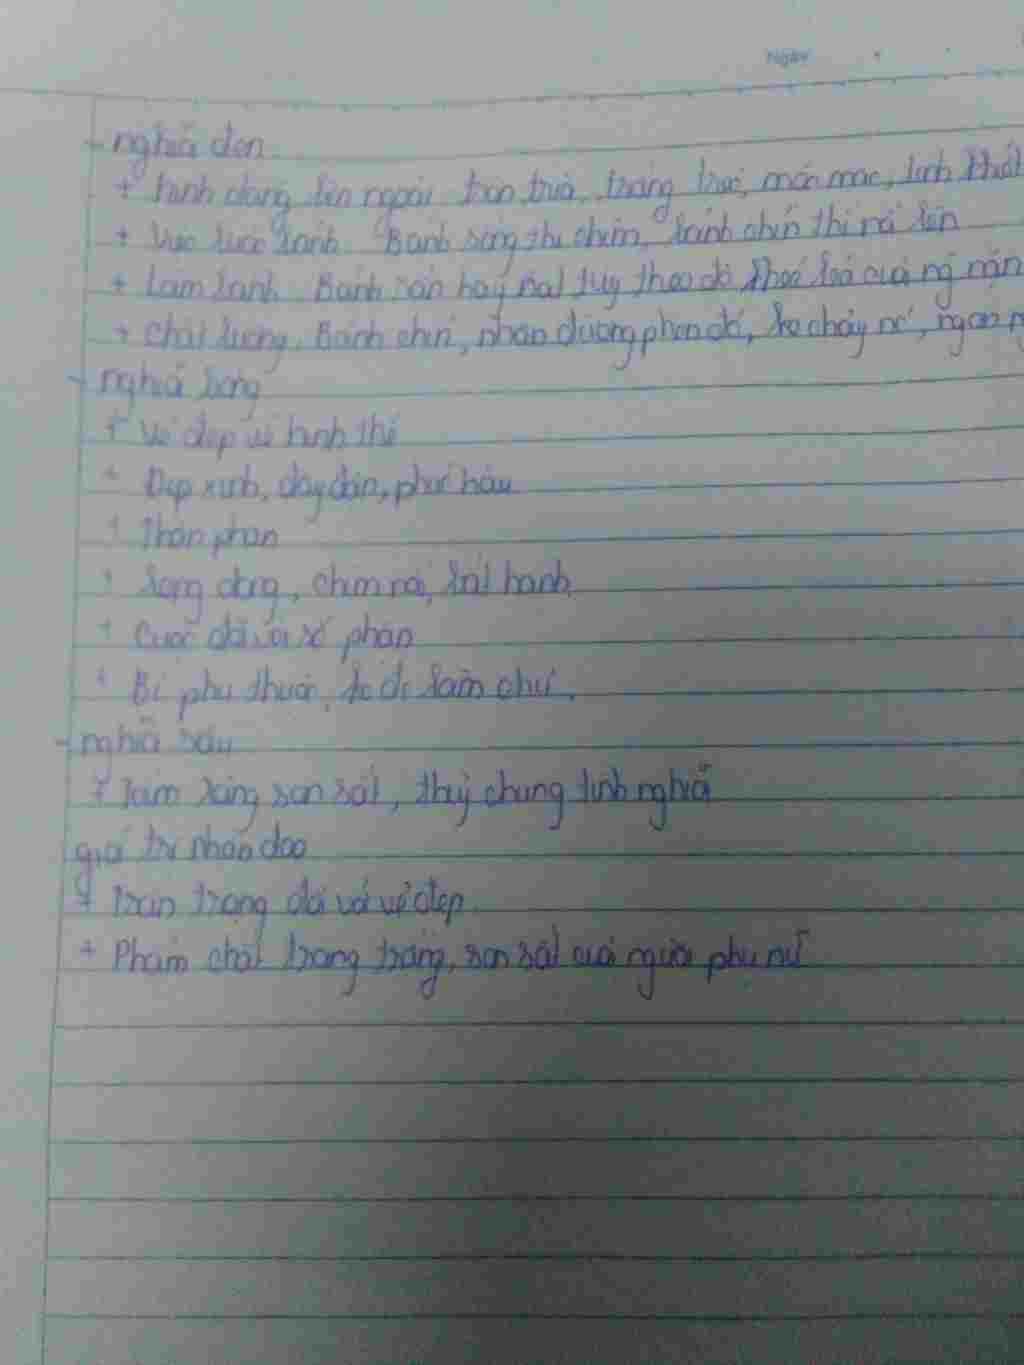 Ngày
- nghĩa đen
+ hình dáng bên ngoài tròn trịa, trắng trẻo, mềm mại, tinh khiết
+ luộc bánh Bánh sống thì chìm, bánh chín thì nổi lên
+ Làm bánh Bánh rắn hay nát tùy theo độ khéo léo của ng nặn
+ Chất lượng, Bánh chín, nhân đường phên đỏ, ko chảy nc, ngon
- nghĩa bóng
+ Vẻ đẹp về hình thể
+ Đẹp xinh, đầy đặn, phúc hậu
+ Thân phận
+ long đong, chìm nổi, bất hạnh
+ Cuộc đời và số phận
+ Bị phụ thuộc, ko đc làm chủ.
- nghĩa sâu
+ tấm lòng son sắt, thủy chung tình nghĩa
giá trị nhân đạo
+ trân trọng đối với vẻ đẹp
+ Phẩm chất trong trắng, son sắt của người phụ nữ